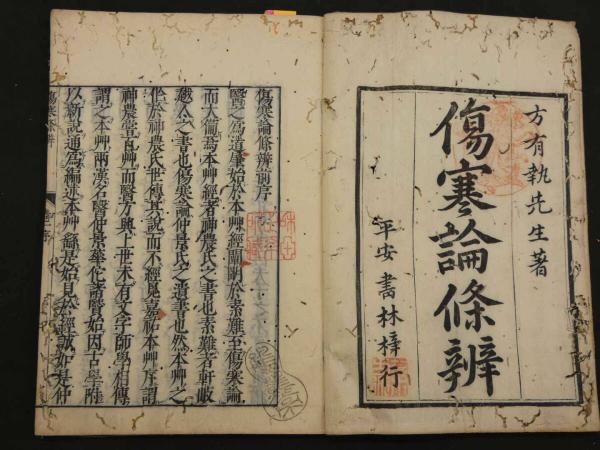 方有執先生著
傷寒論條辨
平安書林梓行
傷寒論條辨前序
醫之為道肇始於本艸經闡闢於素難至傷寒論
而大備焉本艸經者神農氏之書也素難者軒岐
越人之書也傷寒論仲景氏之遺書也然本艸之
出於神農氏世傳其說而不經見嘉祐本艸序謂
神農嘗百艸而醫方興上世未有文字師學相傳
謂之本艸兩漢名醫仲景華佗諸賢始因古學附
以新說通為編述本艸繇是始見於經誠如是仲
傷寒條辨